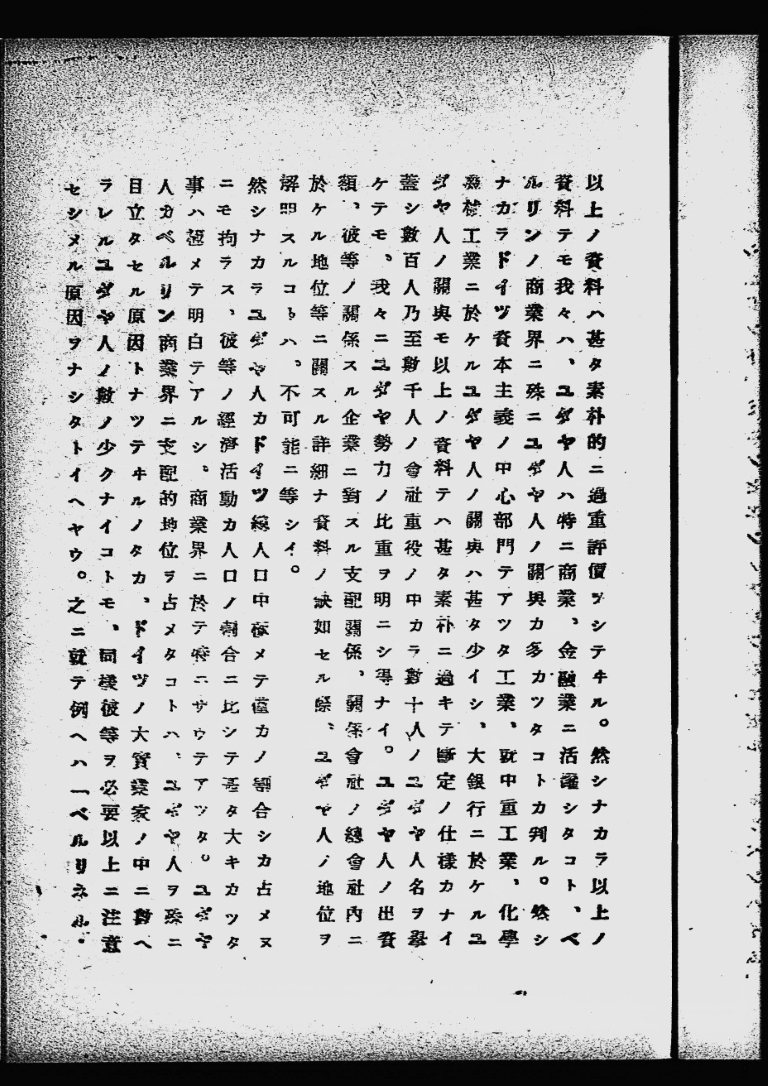 以上ノ資料ハ甚タ素朴的ニ過重評價ヲシテヰル。然シナカラ以上ノ
資料テモ我々ハ、ユダヤ人ハ特ニ商業、金融業ニ活躍シタコト、ベ
ルリンノ商業界ニ殊ニユダヤ人ノ關與カ多カツタコトカ判ル。然シ
ナカラドイツ資本主義ノ中心部門テアツタ工業、就中重工業、化學
機械工業ニ於ケルユダヤ人ノ關與ハ甚タ少イシ、大銀行ニ於ケルユ
ダヤ人ノ關與モ以上ノ資料テハ甚タ素朴ニ過キテ斷定ノ仕樣カナイ
蓋シ數百人乃至數千人ノ會社重役ノ中カラ數十人ノユダヤ人名ヲ擧
ケテモ、我々ニユダヤ勢力ノ比重ヲ明ニシ得ナイ。ユダヤ人ノ出資
額、彼等ノ關係スル企業ニ對スル支配關係、關係會社ノ總會社内ニ
於ケル地位等ニ關スル詳細ナ資料ノ缺如セル際、ユダヤ人ノ地位ヲ
解明スルコトハ、不可能ニ等シイ。
然シナカラユダヤ人カドイツ總人口中極メテ僅カノ割合シカ占メヌ
ニモ拘ラス、彼等ノ經濟活動カ人口ノ割合ニ比シテ甚タ大キカツタ
事ハ極メテ明白テアルシ、商業界ニ於テ特ニサウテアツタ。ユダヤ
人カベルリン商業界ニ支配的地位ヲ占メタコトハ、ユダヤ人ヲ殊ニ
目立タセル原因トナツテヰルノタカ、ドイツノ大實業家ノ中ニ數ヘ
ラレルユダヤ人ノ數ノ少クナイコトモ、同樣彼等ヲ必要以上ニ注意
セシメル原因ヲナシタトイヘヤウ。之ニ就テ例ヘハ「ベルリネル・